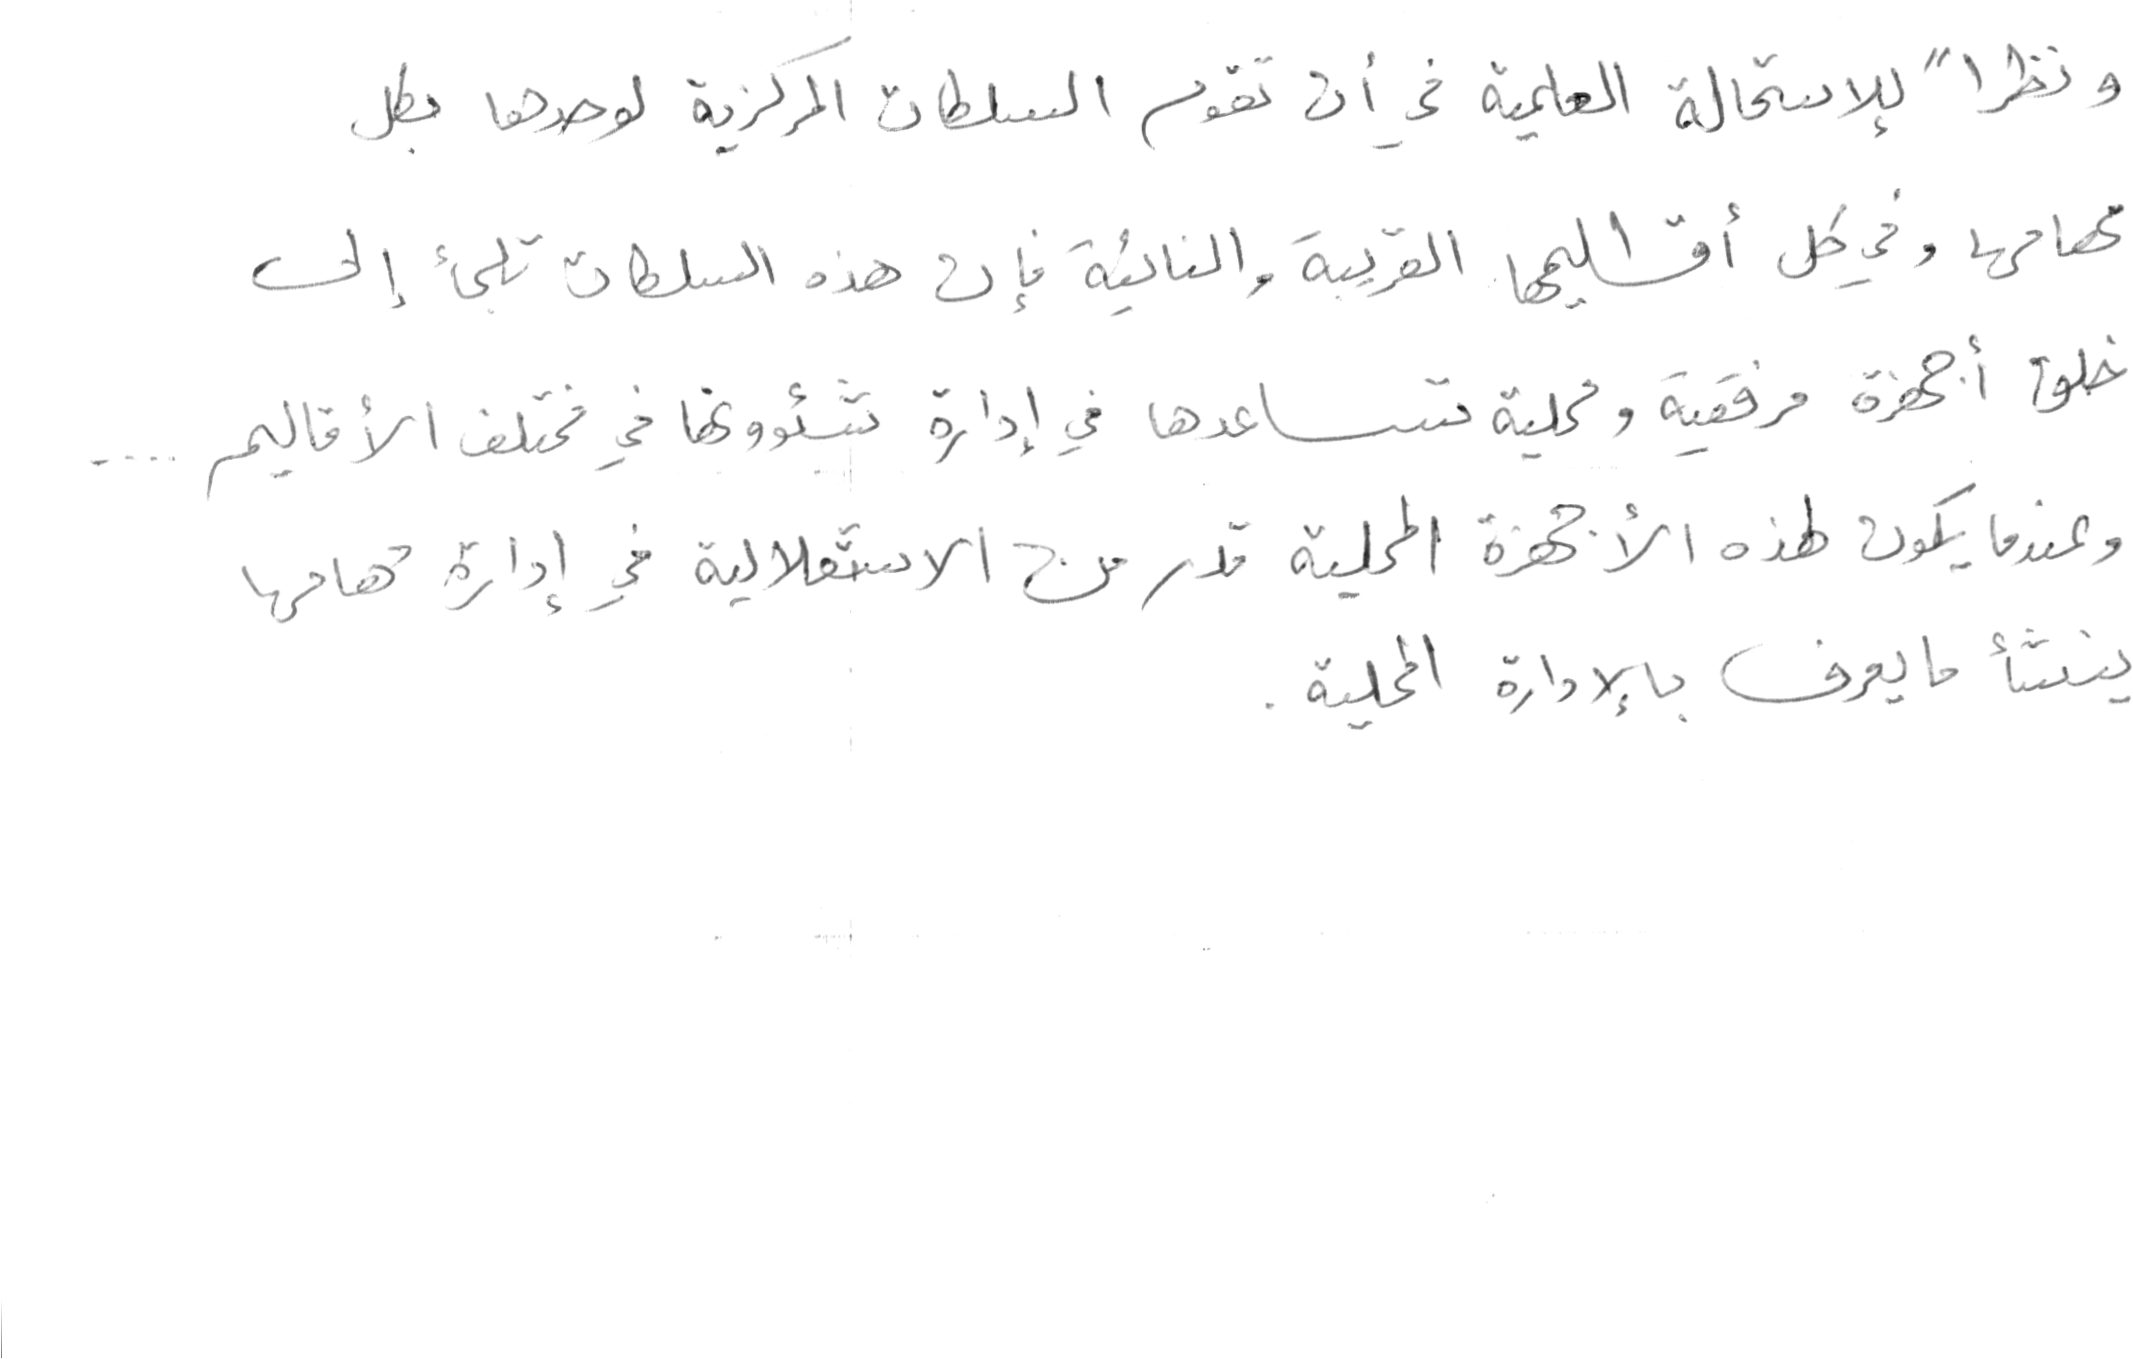 ونظرا" للإستحالة العلمية في أن تقوم السلطات المركزية لوحدها بكل
مهامها وفي كل أقاليمها القريبة والنائية فإن هذه السلطات تلجئ إلى
خلق أجهزة مرفقية ومحلية تساعدها في إدارة شئوونها في مختلف الأقاليم ....
وعندما يكون لهذه الأجهزة المحلية قدر من الاستقلالية في إدارة مهامها
ينشأ ما يعرف بالإدارة المحلية .